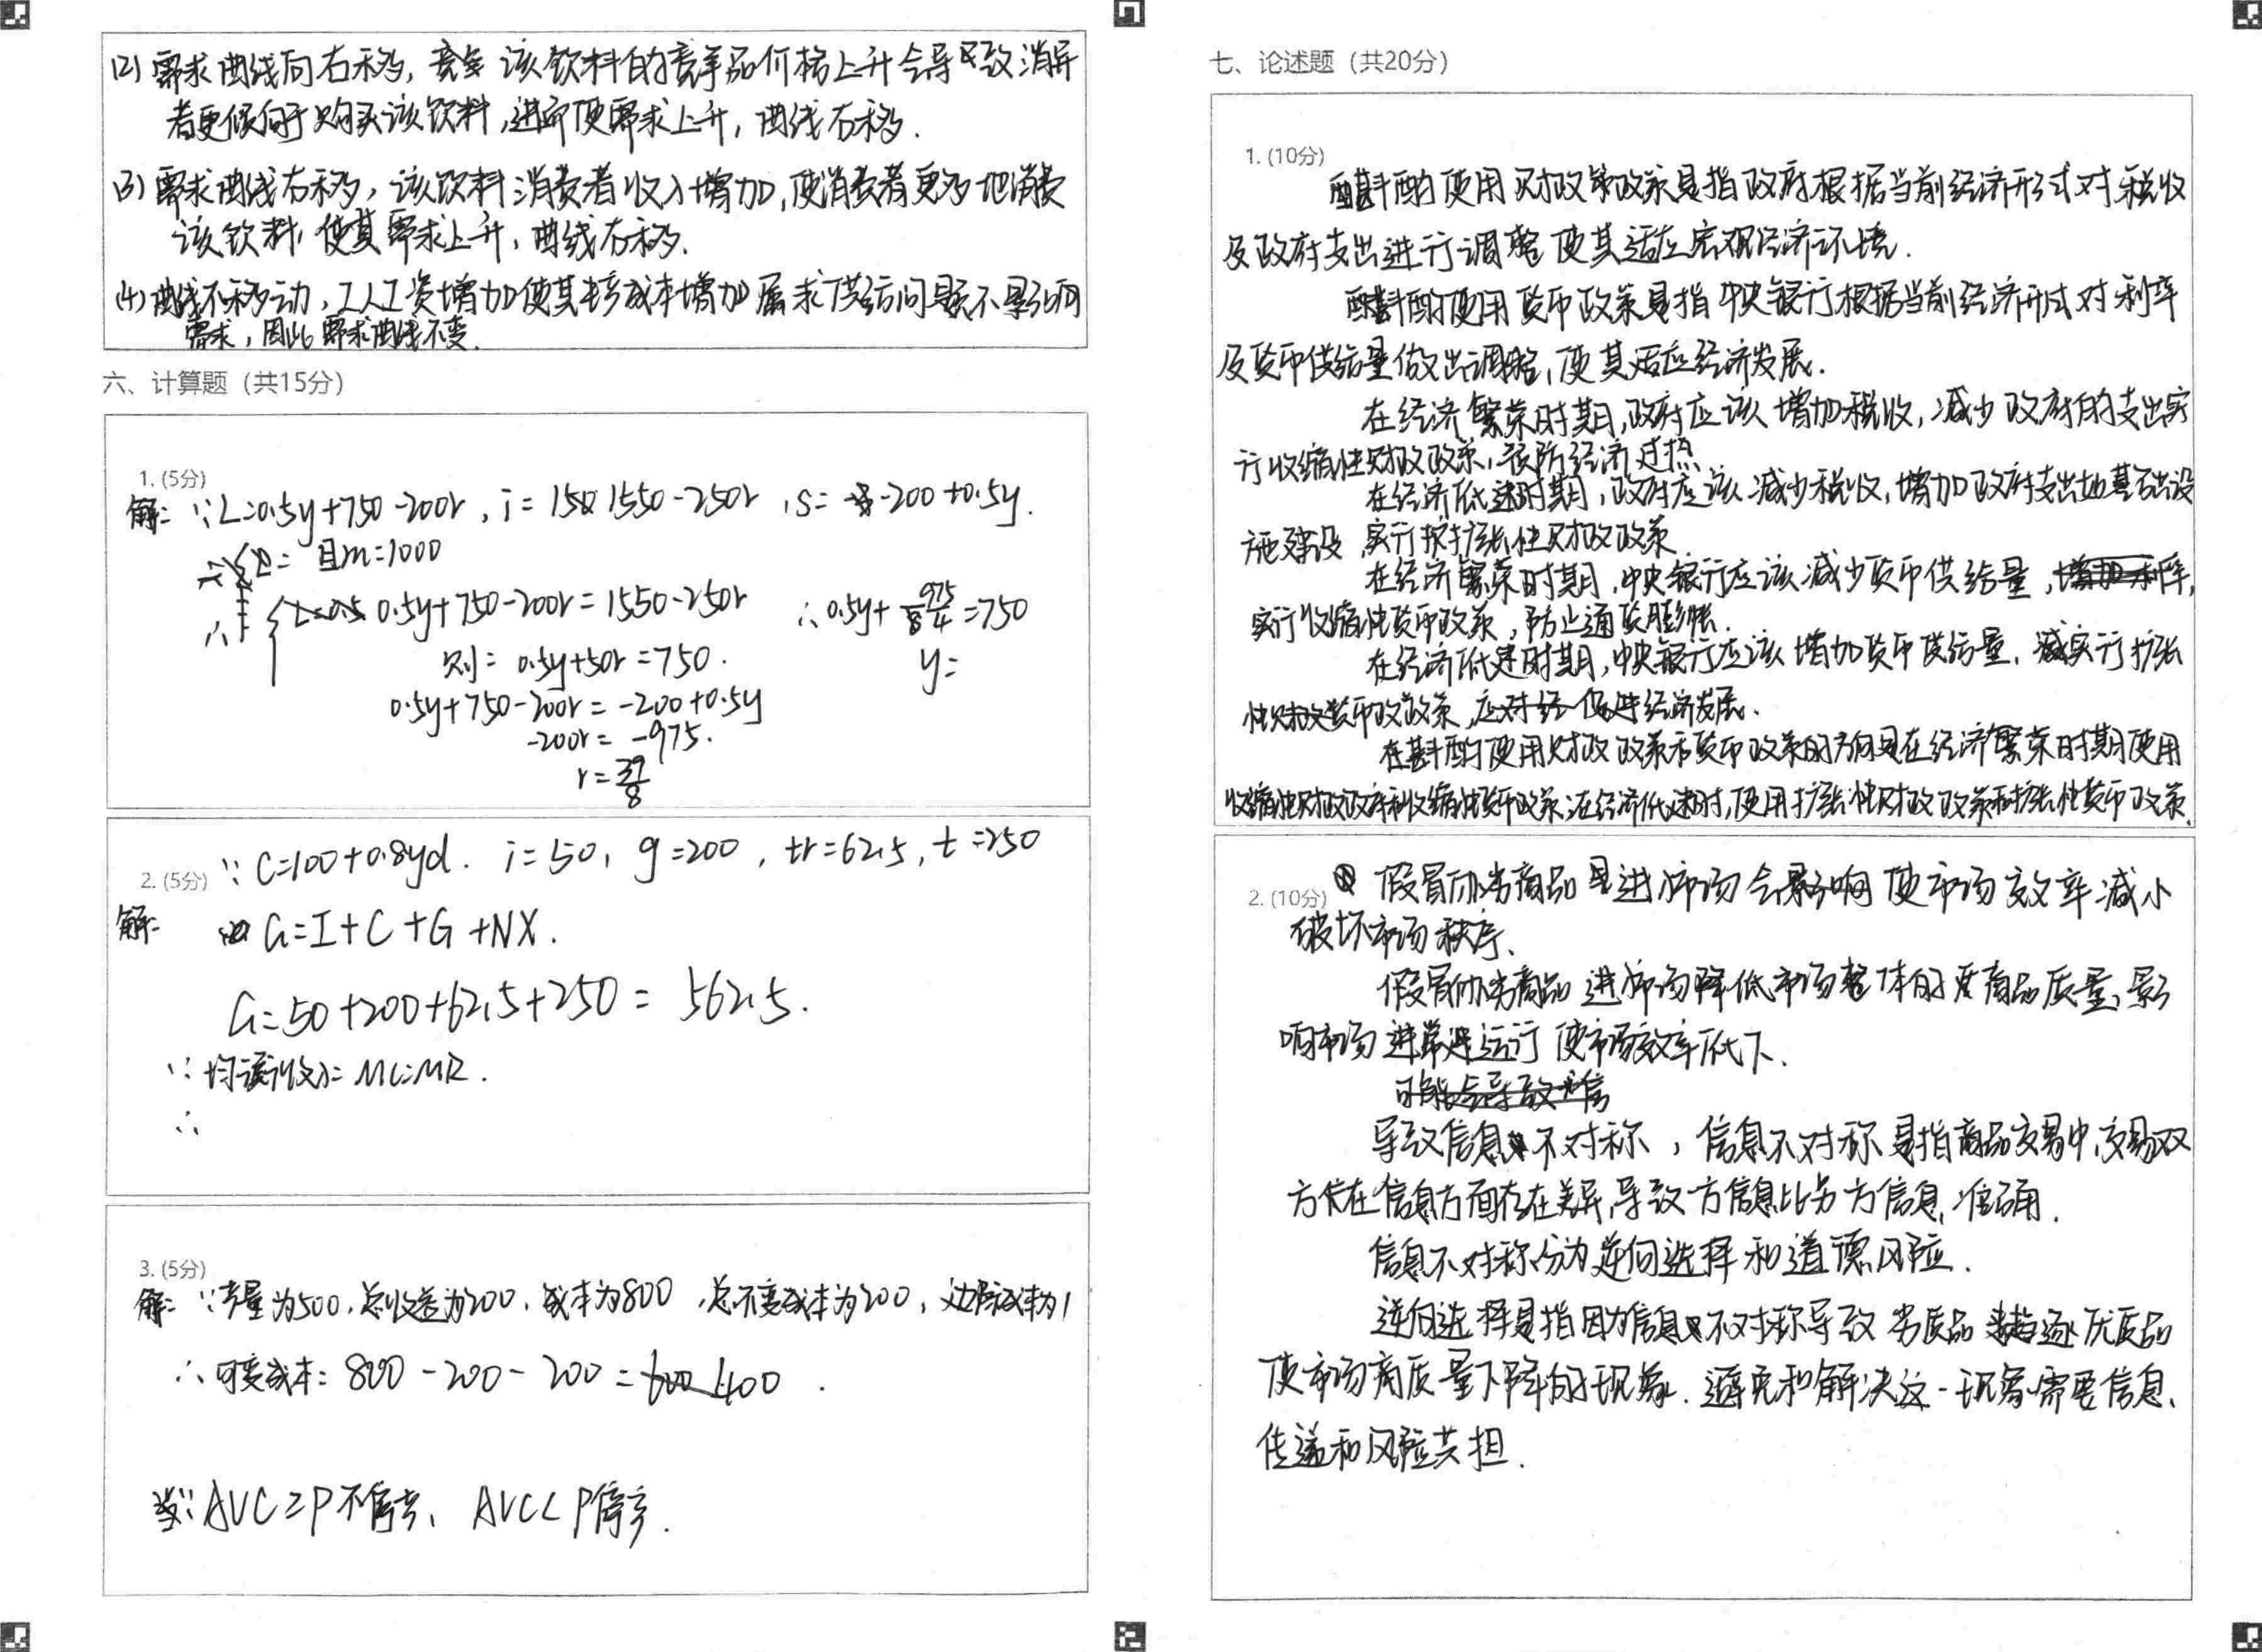 (2) 需求曲线向右移，该饮料的竞争品价格上升会导致消费
者更倾向于购买该饮料，进而使需求上升，曲线右移.
(3) 需求曲线右移，该饮料消费者收入增加，使消费者更多地消费
该饮料，使其需求上升，曲线右移.
(4) 曲线不移动，工人工资增加使其生产成本增加属供给问题不影响
需求，因此需求曲线不变.
六、计算题（共15分）
1. (5分)
解: ∵L=0.5y+750-200r, i=1550-250r, s=-200+0.5y.
且m=1000
∴ 0.5y+750-200r=1550-250r ∴0.5y+975/4=750
则= 0.5y+50r=750. y=
0.5y+750-200r=-200+0.5y
-200r=-975.
r=39/8
2. (5分) ∵C=100+0.8yd. i=50, g=200, tr=62.5, t=250
解: G=I+C+G+NX.
G=50+200+62.5+250=562.5.
∵均衡收入= MC=MR.
∴
3. (5分)
解: ∵产量为500，总收益为200，成本为800，总不变成本为200，边际成本为1
∴可变成本: 800-200-200=400.
当∵AVC≥P不停产、AVC<P停产.
七、论述题（共20分）
1. (10分)
斟酌使用财政政策是指政府根据当前经济形式对税收
及政府支出进行调整使其适应宏观经济环境.
斟酌使用货币政策是指中央银行根据当前经济形式对利率
及货币供给量做出调整，使其适应经济发展.
在经济繁荣时期，政府应该增加税收，减少政府的支出实
行收缩性财政政策，预防经济过热
在经济低迷时期，政府应该减少税收，增加政府支出如基础设
施建设，实行扩张性财政政策
在经济繁荣时期，中央银行应该减少货币供给量，
实行收缩性货币政策，防止通货膨胀.
在经济低迷时期，中央银行应该增加货币供给量，实行扩张
性货币政策，促进经济发展.
在斟酌使用财政政策和货币政策的方向是在经济繁荣时期使用
收缩性财政政策和收缩性货币政策，在经济低迷时，使用扩张性财政政策和扩张性货币政策.
2. (10分) 假冒伪劣商品进市场会影响使市场效率减小
破坏市场秩序、
假冒伪劣商品进市场降低市场整体的商品质量，影
响市场正常运行使市场效率低下.
可能会导致信
导致信息不对称，信息不对称是指商品交易中，交易双
方在信息方面存在差异，导致一方信息比另一方信息准确.
信息不对称分为逆向选择和道德风险.
逆向选择是指因为信息不对称导致劣质品驱逐优质品
使市场商质量下降的现象. 避免和解决这一现象需要信息
传递和风险共担.